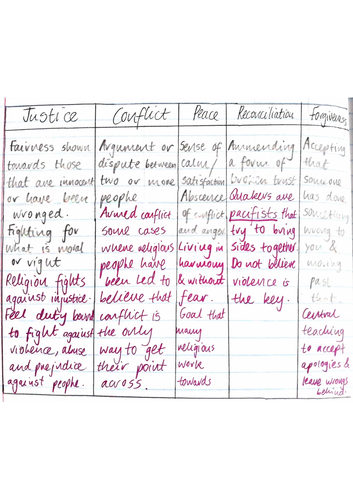 Justice
Conflict
Peace
Reconciliation
Forgiveness
Fairness shown
towards those
that are innocent
or have been
wronged.
Fighting for
what is moral
or right
Religion fights
against injustice.
Feel duty bound
to fight against
violence, abuse
and prejudice
against people.
Argument or
dispute between
two or more
people
Armed conflict
some cases
where religious
people have
been led to
believe that
conflict is
the only
way to get
their point
across.
Sense of
calm/
satisfaction
Absence
of conflict
and anger
Living in
harmony
& without
fear.
Goal that
many
religious
work
towards
Ammending
a form of
broken trust
Quakers are
pacifists that
try to bring
sides together
Do not believe
violence is
the key.
Accepting
that
someone
has done
something
wrong to
you &
moving
past
that.
Central
teaching
to accept
apologies &
leave wrongs
behind.